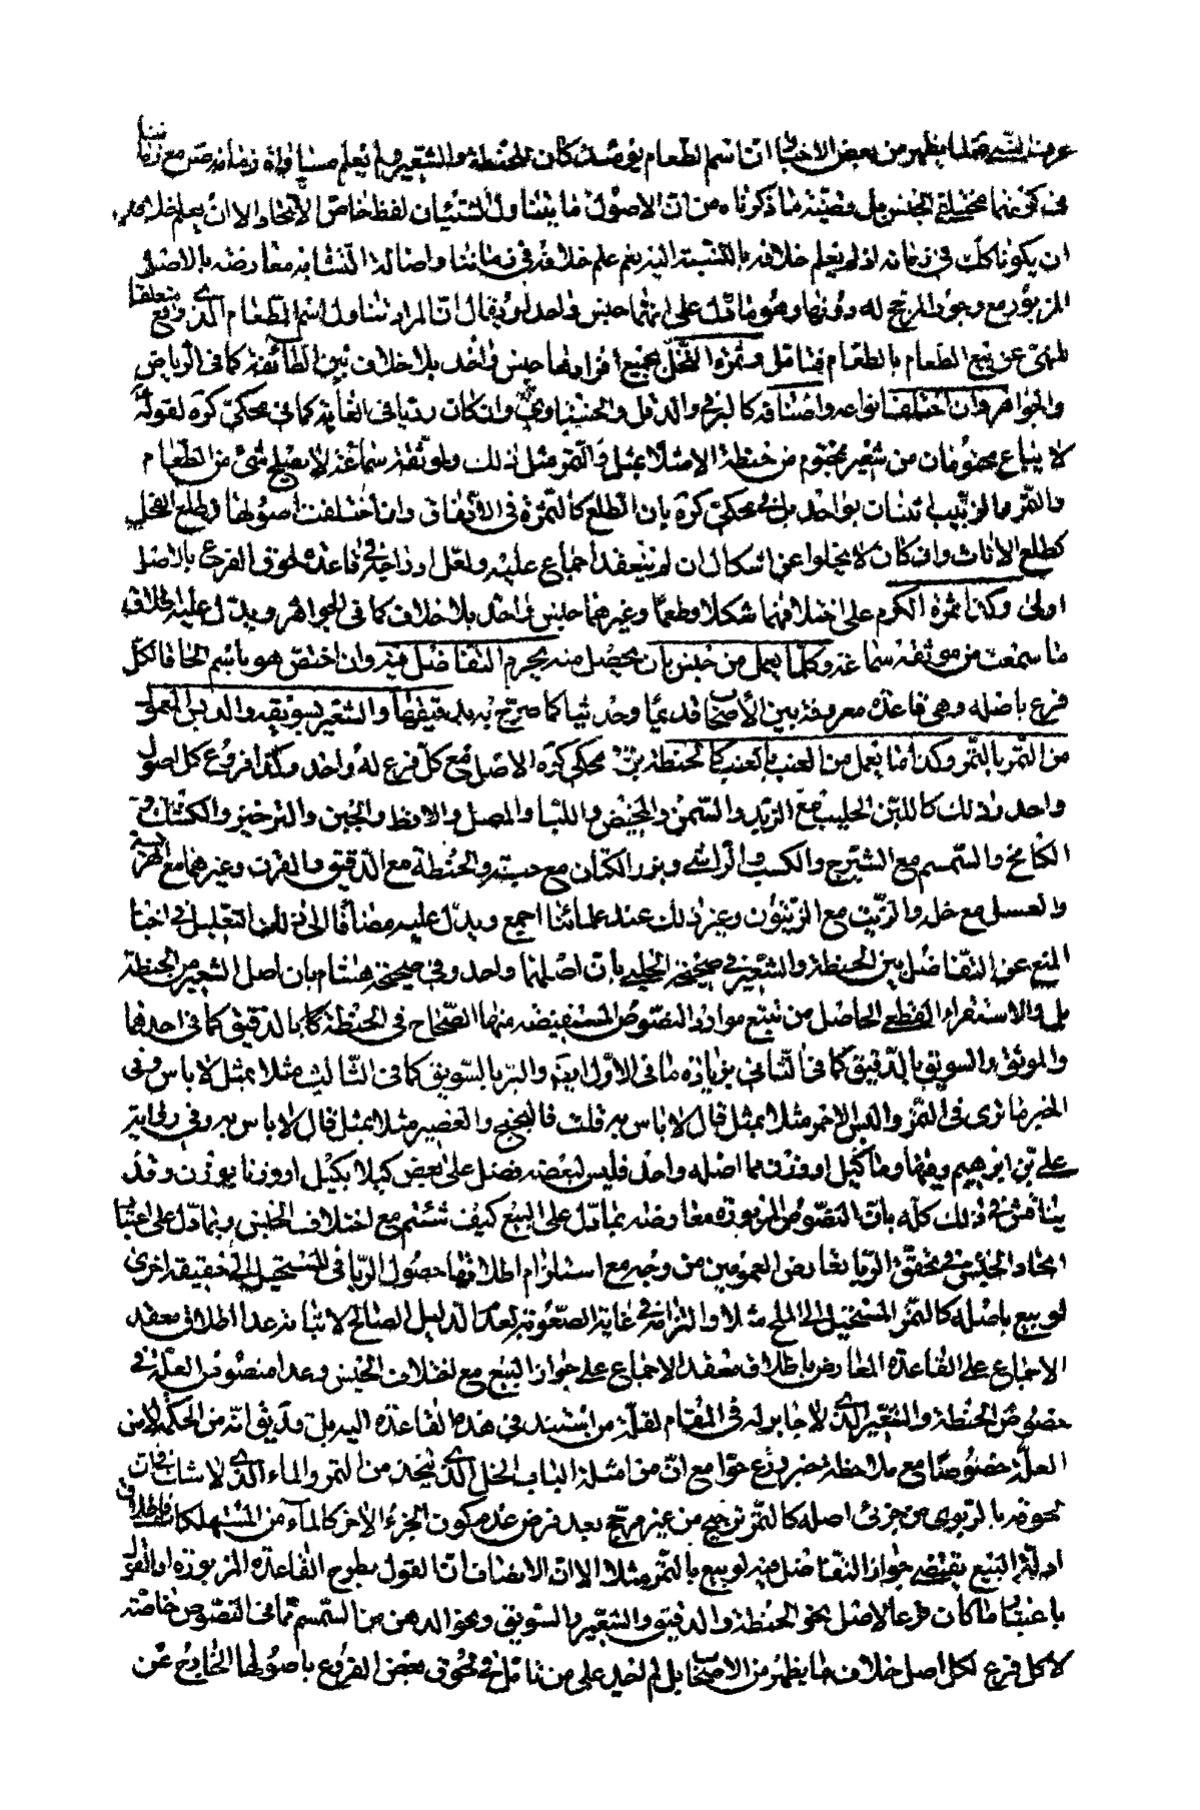 عرف السنه كما يظهر من بعض الاخبار ان اسم الطعام يومئذ كان للحنطة والشعير ولم يعلم مساواة زمانه ص مع زماننا
في كونهما مختلفي الجنس بل قضيّة ما ذكرناه من ان الاصول ما يتناول الشيئان لفظ خاصّ الاتحاد الا ان يعلم خلافه
ان يكونا كك في زمانه اذ لم يعلم خلافه بالنسبة اليه نعم علم خلافه في زماننا واصالة التشابه معارضة بالاصل
المزبور مع وجود المرجح له دونها وهو ما دلّ على انهما جنس واحد لو يقال انّ المراد تناول اسم الطعام الذي وقع متعلقا
للنهي عن بيع الطعام بالطعام فتامّل وثمرة النخل بجميع افرادها جنس واحد بلا خلاف بين الطائفة كما في الرياض
والجواهر وان اختلفت انواعه واصنافه كالبرني والدقل وان كان ردّيا في الغاية كما في محكيّ كره لقوله
لا يباع مختومان من شعير بمختوم من حنطة الا مثلا بمثل والتمر مثل ذلك وموثقة سماعة لا يصلح شئ من الطعام
والتمر والزبيب اثنان بواحد بل في محكيّ كره بان الطلع كالثمرة في الاتفاق وان اختلفت اصولها وطلع الفحل
كطلع الاناث وان كان لا يخلوا عن اشكال ان لم ينعقد اجماع عليه ولعل ادراجه في قاعدة لحوق الفرع بالاصل
اولى وكذا ثمرة الكرم على اختلافهما شكلا وطعما وغيرهما جنس واحد بلا خلاف كما في الجواهر ويدلّ عليه
ما سمعت من موثقة سماعة وكلّما يعمل من جنس بان يحصل منه يحرم التفاضل فيه وان اختصّ هو باسم الخا فالكلّ
فرع باصله وهي قاعدة معروفة بين الاصحاب قديما وحديثا كما صرّح به بدقيقها والشعير بسويقه والدبس المعمول
من التمر بالتمر وكذا ما يعمل من العنب بالعنب كالحنطة محكي كره الاصل مع كلّ فرع له واحد وكذا فروع كل اصل
واحد وذلك كاللبن الحليب مع الزبد والسمن والمخيض واللبأ والمصل والاقط والجبن والترخين والكشك و
الكامخ والسمسم مع الشيرج والكسب والراشي وبزر الكتان مع حبّه والحنطة مع الدقيق والخبز وغيرهما مع الهريسة
والعسل مع خله والزيت مع الزيتون وغير ذلك عند علمائنا اجمع ويدلّ عليه مضافا الى ذلك التعليل في اخبار
المنع عن التفاضل بين الحنطة والشعير في صحيحة الحلبي بان اصلهما واحد وفي صحيحة هشام بان اصل الشعير من الحنطة
بل والاستقراء القطعي الحاصل من تتبع موارد النصوص المستفيضة منها الصّحاح في الحنطة بالدقيق كما في احدها
والموثق والسويق بالدقيق كما في الثاني بزيادة ما في الاول ايضا والبر بالسويق كما في الثالث مثلا بمثل لا باس وفي
الخبر ما ترى في التمر والبسر الاحمر مثلا بمثل قال لا باس به قلت فالبختج والعصير مثلا بمثل قال لا باس به وفي رواية
علي بن ابرهيم وفيها وما كيل او وزن مما اصله واحد فليس لبعضه فضل على بعض كيلا بكيل او وزنا بوزن وقد
يناقش في ذلك كله بان النصوص المزبورة معارضة بما دلّ على البيع كيف شئتم مع اختلاف الجنس وبما دلّ على اعتبار
اتحاد الجنس في تحقق الربا تعارض العمومين من وجه مع استلزام اطلاقها حصول الربا في المستحيل الى حقيقة اخرى
لو بيع باصله كالتمر المستحيل الى الملح مثلا والتزامه في غاية الصعوبة بعد الدليل الصالح لاثباته عدا اطلاق معقد
الاجماع على القاعدة المعارض باطلاق معقد الاجماع على جواز البيع مع اختلاف الجنس وعدا منصوص العلّة في
خصوص الحنطة والشعير الذي لا جابر له في المقام لقلّة من استند في هذه القاعدة اليه بل قد يق انّه من الحكمة لا من
العلّة خصوصا مع ملاحظة خبر مع انّ من امثلة الباب الخل الذي يتّخذ من التمر والماء الذي لا شك في ان
لحوقه بالربوي من جزئي اصله كالتمر ترجيح من غير مرجّح بعد فرض عدم كون الجزء الاخر كالماء من المستهلكات فاطلاق
ادلّة البيع يقتضى جواز التفاضل فيه لو بيع بالتمر مثلا الا انّ الانصاف انّ القول بطرح القاعدة المزبورة او القول
باعتبار ما كان فرعا لاصل بنحو الحنطة والدقيق والشعير بالسويق ونحو الدهن من السمسم ممّا في النصوص خاصّة
لا كل فرع لكل اصل خلاف ما يظهر من الاصحاب بل لم نجد على من تامّل في لحوق بعض الفروع باصولها الخارج عن